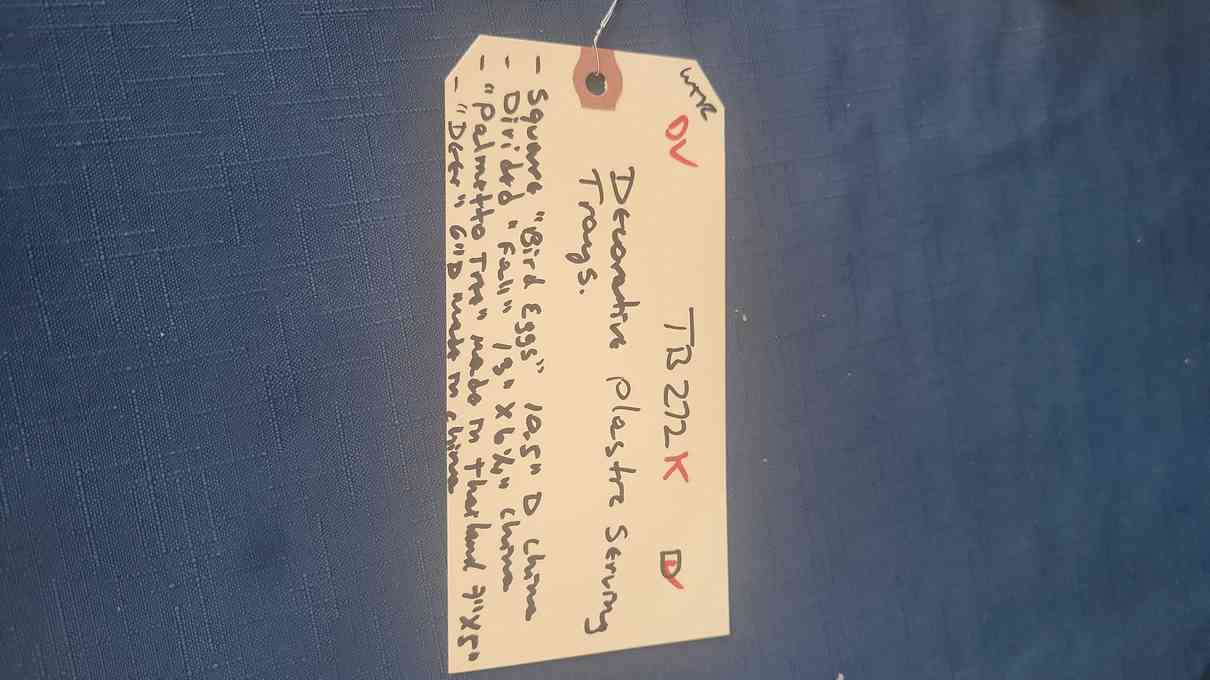 WTR
DV TB 272K
Decorative Plastic Serving
Trays.
- Square "Bird Eggs" 10.5" D China
- Divided "Fall" 13" X 6½" China
- "Palmetto Tree" made in Thailand 7"X5"
- "Deer" 6"D made in China